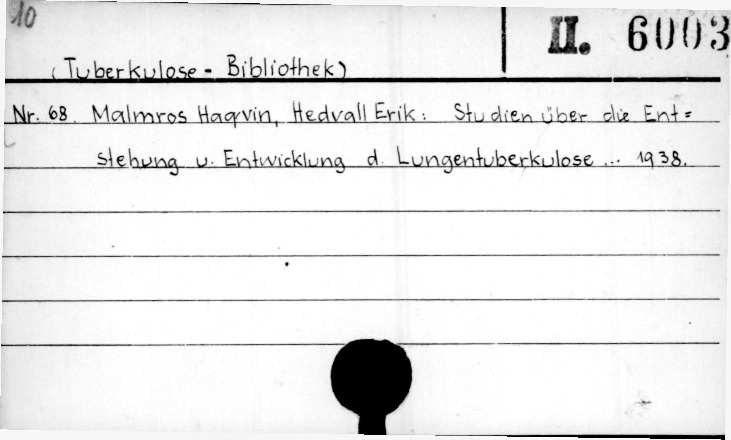 10
II. 6003
(Tuberkulose - Bibliothek)
Nr. 68. Malmros Haqvin, Hedvall Erik: Studien über die Ent=
stehung u. Entwicklung d. Lungentuberkulose ... 1938.